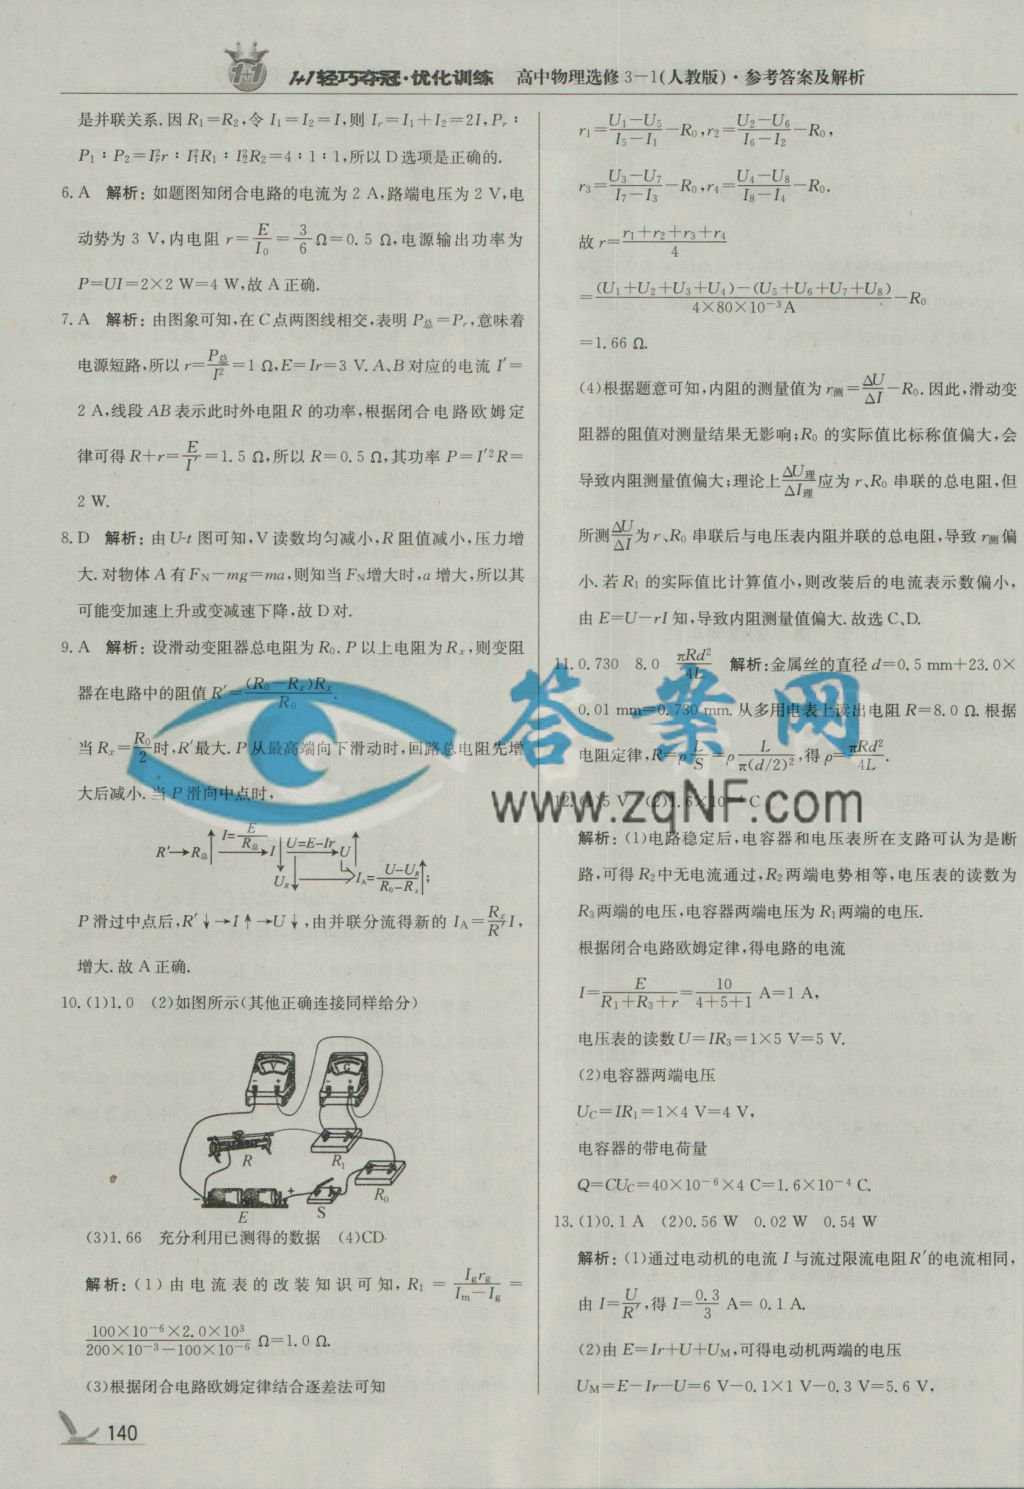 1+1轻巧夺冠·优化训练 高中物理选修3-1(人教版)·参考答案及解析
是并联关系.因R₁=R₂,令I₁=I₂=I,则Iᵣ=I₁+I₂=2I,Pᵣ∶
P₁∶P₂=Iᵣ²r∶I₁²R₁∶I₂²R₂=4∶1∶1,所以D选项是正确的.
6.A 解析:如题图知闭合电路的电流为2 A,路端电压为2 V,电
动势为3 V,内电阻r=E/I₀=3/6 Ω=0.5 Ω,电源输出功率为
P=UI=2×2 W=4 W,故A正确.
7.A 解析:由图象可知,在C点两图线相交,表明P总=Pᵣ,意味着
电源短路,所以r=P总/I²=1 Ω,E=Ir=3 V.A、B对应的电流I′=
2 A,线段AB表示此时外电阻R的功率,根据闭合电路欧姆定
律可得R+r=E/I′=1.5 Ω,所以R=0.5 Ω,其功率P=I′²R=
2 W.
8.D 解析:由U-t图可知,V读数均匀减小,R阻值减小,压力增
大.对物体A有F_N-mg=ma,则知当F_N增大时,a增大,所以其
可能变加速上升或变减速下降,故D对.
9.A 解析:设滑动变阻器总电阻为R₀.P以上电阻为Rₓ,则变阻
器在电路中的阻值R′=(R₀-Rₓ)Rₓ/R₀.
当Rₓ=R₀/2时,R′最大.P从最高端向下滑动时,回路总电阻先增
大后减小.当P滑向中点时,
R′→R总↑ I=E/R总→I↓ U=E-Ir→U↑
U_R↓→I_A=(U-U_R)/(R₀-Rₓ)↑;
P滑过中点后,R′↓→I↑→U↓,由并联分流得新的I_A=Rₓ/R′ I,
增大.故A正确.
10.(1)1.0 (2)如图所示(其他正确连接同样给分)
V G
R R₁ R₀
- E + S
(3)1.66 充分利用已测得的数据 (4)CD
解析:(1)由电流表的改装知识可知,R₁=I_g r_g/(I_m-I_g)=
100×10⁻⁶×2.0×10³/(200×10⁻³-100×10⁻⁶) Ω=1.0 Ω.
(3)根据闭合电路欧姆定律结合逐差法可知
140
r₁=(U₁-U₅)/(I₅-I₁)-R₀,r₂=(U₂-U₆)/(I₆-I₂)-R₀,
r₃=(U₃-U₇)/(I₇-I₃)-R₀,r₄=(U₄-U₈)/(I₈-I₄)-R₀.
故r=(r₁+r₂+r₃+r₄)/4
=((U₁+U₂+U₃+U₄)-(U₅+U₆+U₇+U₈))/(4×80×10⁻³A)-R₀
=1.66 Ω.
(4)根据题意可知,内阻的测量值为r测=ΔU/ΔI-R₀.因此,滑动变
阻器的阻值对测量结果无影响;R₀的实际值比标称值偏大,会
导致内阻测量值偏大;理论上ΔU理/ΔI理应为r、R₀串联的总电阻,但
所测ΔU/ΔI为r、R₀串联后与电压表内阻并联的总电阻,导致r测偏
小.若R₁的实际值比计算值小,则改装后的电流表示数偏小,
由E=U-rI知,导致内阻测量值偏大.故选C、D.
11.0.730 8.0 πRd²/4L 解析:金属丝的直径d=0.5 mm+23.0×
0.01 mm=0.730 mm.从多用电表上读出电阻R=8.0 Ω.根据
电阻定律,R=ρL/S=ρL/π(d/2)²,得ρ=πRd²/4L.
12.(1)5 V (2)1.6×10⁻⁴ C
解析:(1)电路稳定后,电容器和电压表所在支路可认为是断
路,可得R₂中无电流通过,R₂两端电势相等,电压表的读数为
R₃两端的电压,电容器两端电压为R₁两端的电压.
根据闭合电路欧姆定律,得电路的电流
I=E/(R₁+R₃+r)=10/(4+5+1) A=1 A,
电压表的读数U=IR₃=1×5 V=5 V.
(2)电容器两端电压
U_C=IR₁=1×4 V=4 V,
电容器的带电荷量
Q=CU_C=40×10⁻⁶×4 C=1.6×10⁻⁴ C.
13.(1)0.1 A (2)0.56 W 0.02 W 0.54 W
解析:(1)通过电动机的电流I与流过限流电阻R′的电流相同,
由I=U/R′,得I=0.3/3 A=0.1 A.
(2)由E=Ir+U+U_M,可得电动机两端的电压
U_M=E-Ir-U=6 V-0.1×1 V-0.3 V=5.6 V,
答案网
www.zqNF.com